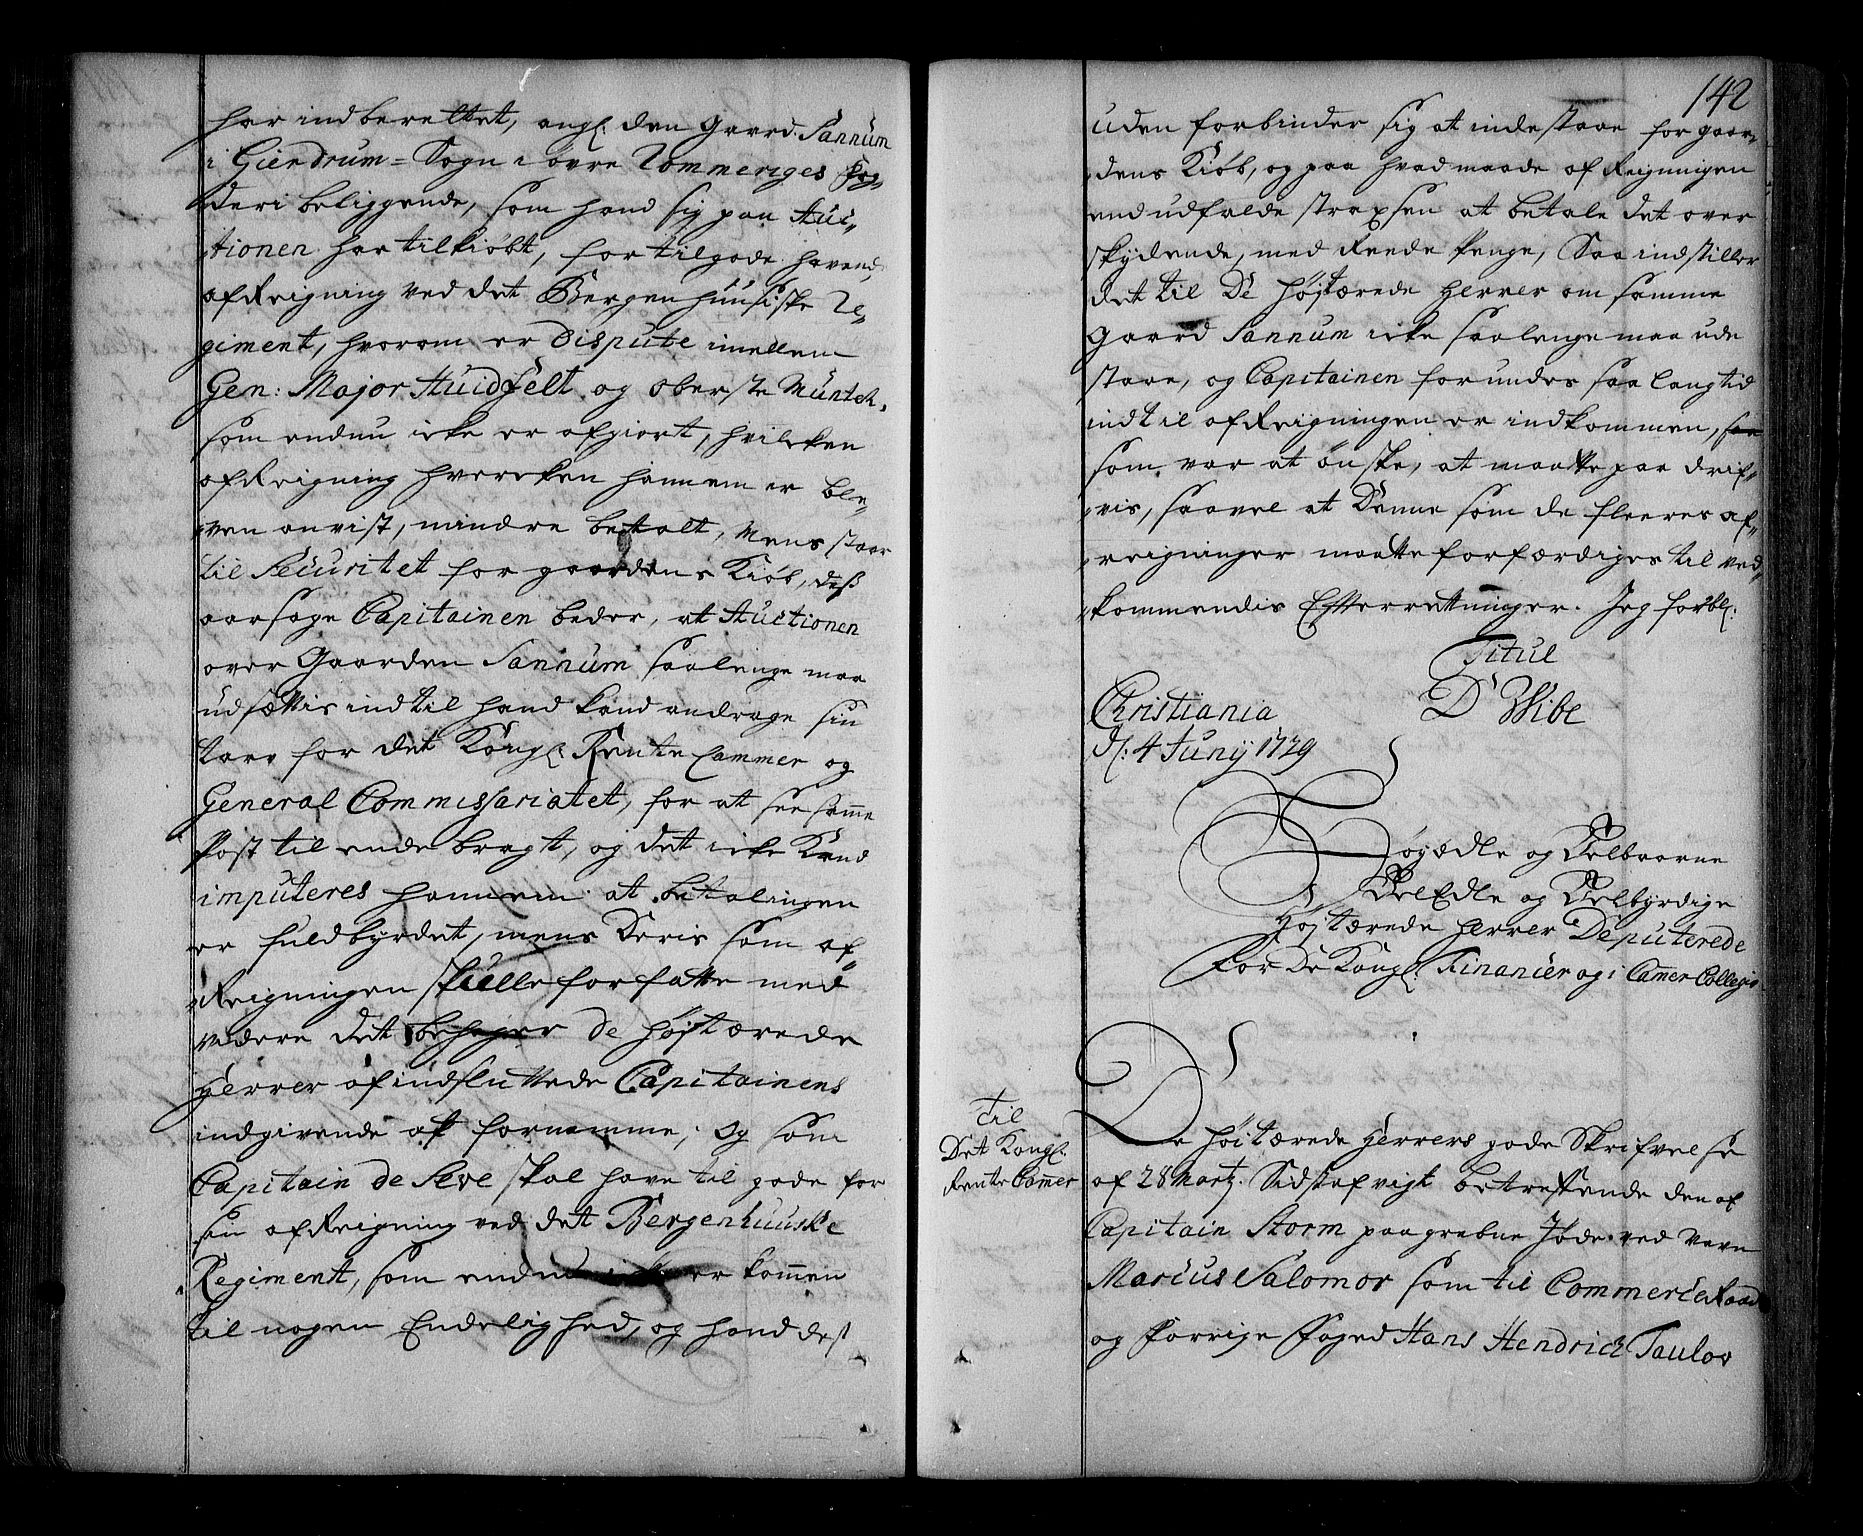 har indberettet, angl: den Gaard Sannum
i Giendrum=Sogn i øvre Rommeriges Fog-
deri beliggende, som hand sig paa Auc-
tionen har tilkiøbt, for tilgode havend,
afReigning ved det Bergenhuusiske Re-
giment, hvorom er Dispute imellem
Gen: Major Huidfelt og Oberste Müntek,
som endnu icke er afgiort, hvilcken
afReigning hvercken hannem er ble-
ven anvist, mindre betalt, Mens staar
til Securitet for gaardens Kiøb, diß
aarsage Capitainen beder, at Auctionen
over Gaarden Sannum saalenge maa
udsættis indtil hand kand andrage sin
tarv for det Kongl: Rente Cammer og
General Commissariatet, for at see samme
Post til ende bragt, og det icke Kand
imputeres hannem at betalingen
er fuldbyrdet, mens Deris som af-
Reigningen skulle forfatte med
videre det behager de høistærede
Herrer af indsluttede Capitainens
indgivende at fornemme; Og som
Capitain de Seve skal have til gode for
sin afReigning ved det Bergenhuuske
Regiment, som endnu icke er kommen
til nogen Endelighed, og hand dest
142
uden forbinder sig at indestaae for gaar-
dens Kiøb, og paa hvad maade afReigningen
end udfalde strax sen at betale det over
skydende, med Reede Penge, Saa indstiller
det til De høistærede Herrer om samme
Gaard Sannum icke saalenge maa ude
staae, og Capitainen forundes saa lang tid
indtil afReigningen er indkommen, saa
som var at ønske, at maatte paa drif-
vis, saavel at Denne som de fleeres af-
reigninger maatte forfærdiges til ved-
kommendis Efterretninger. Jeg forbl:
Titul
D Wibe
Christiania
d: 4 Junij 1729
Høyædle og Velbaarne
VelEdle og Velbyrdige
Høistærede Herrer Deputerede
for De Kongl: Financier og Camer Collegio
til
Det Kongl:
Rente Camer
De høistærede Herrers gode Skrifvelse
af 28 Martz. Sidst afvigt betreffende den af
Capitain Storm paagrebne Jøde ved Navn
Marcus Salomor som til Commerce Raad
og forrige Foged Hans Hendrich Taulov